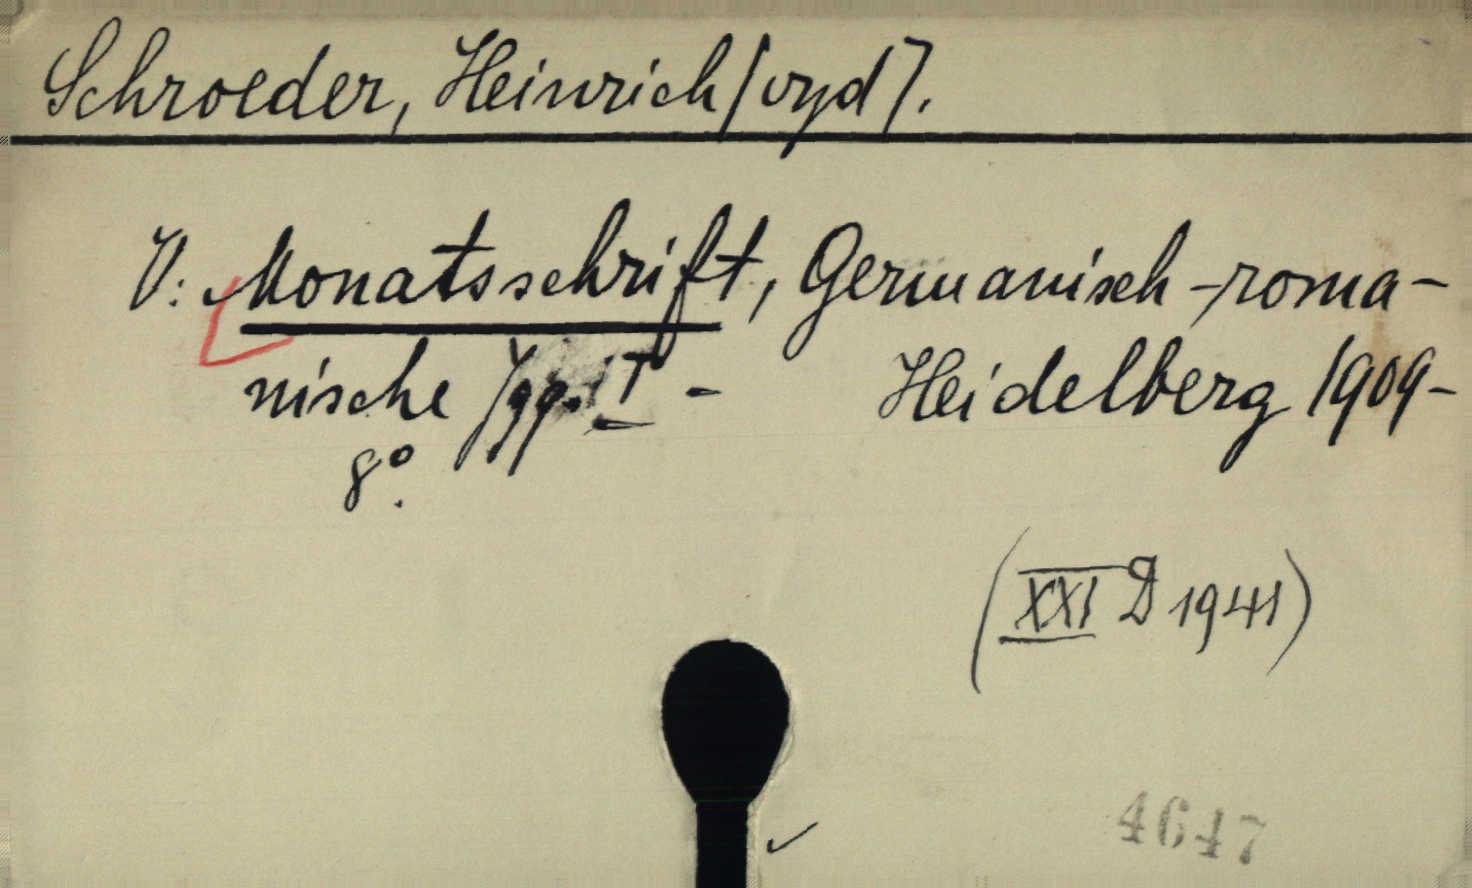 Schroeder, Heinrich [vyd].
V: Monatsschrift, Germanisch-roma-
nische Jgg. I - Heidelberg 1909-
8°.
(XXI D 1941)
4647